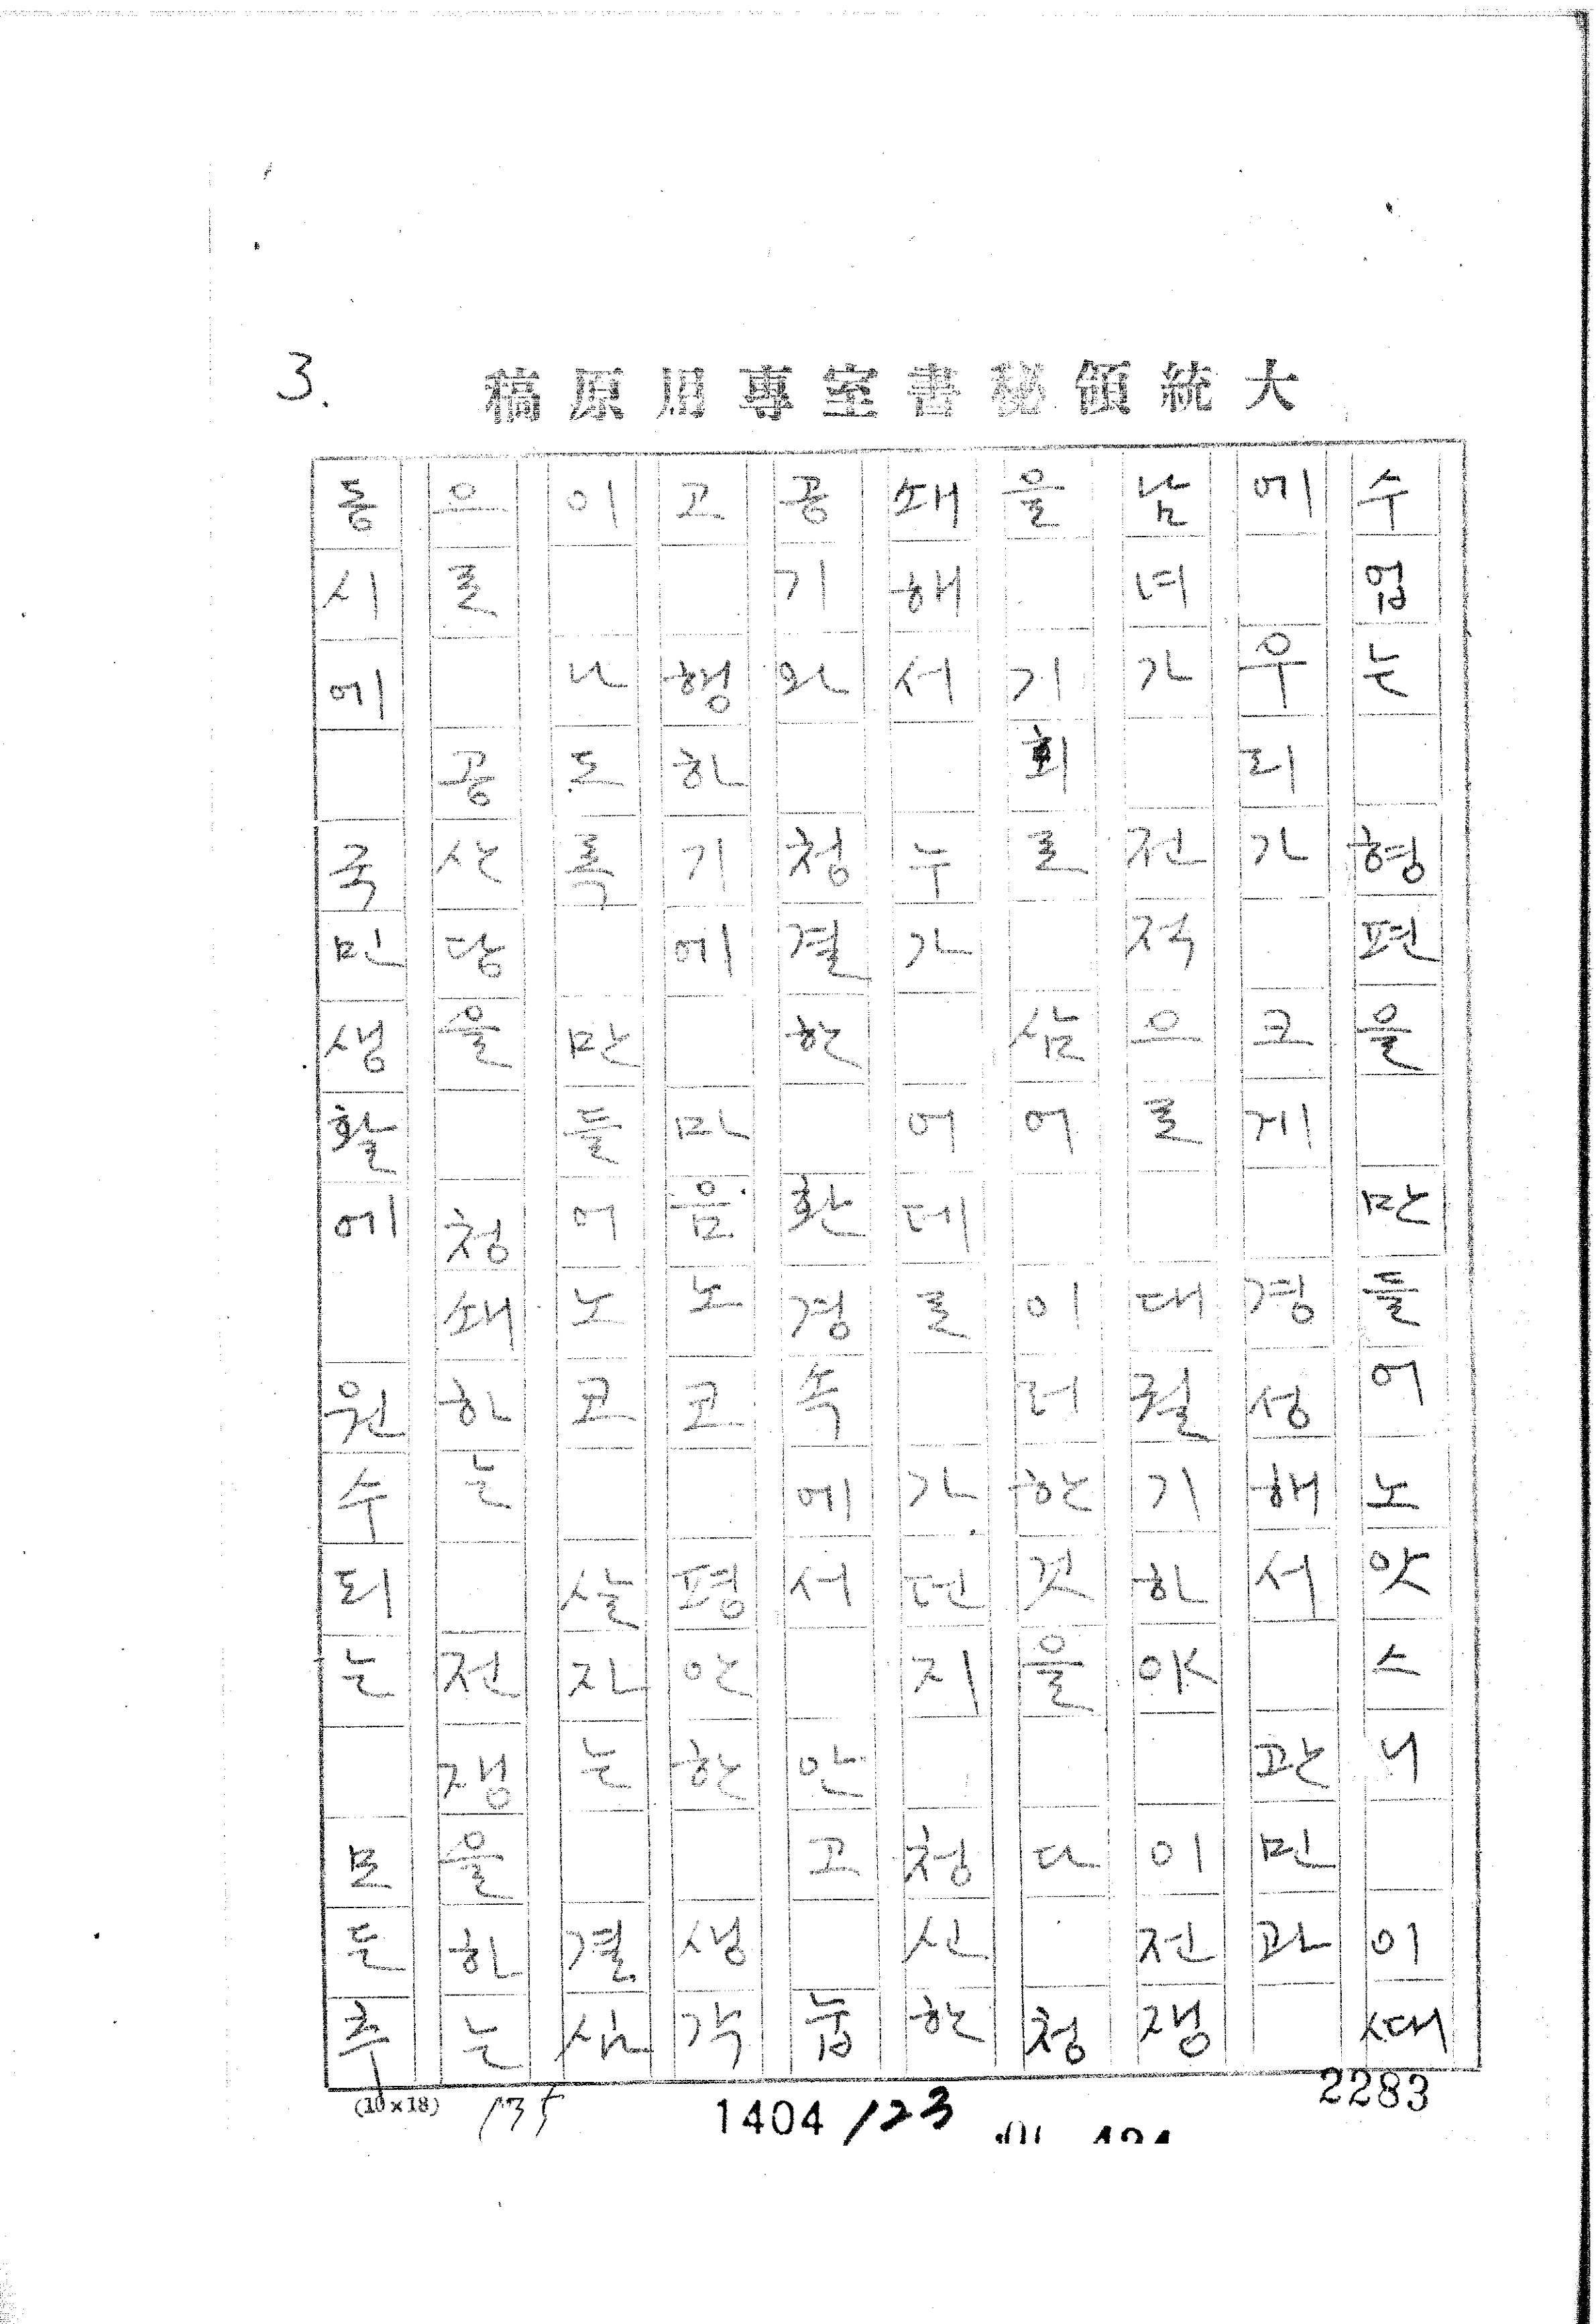 3.
大統領秘書室專用原稿
수업는 형편을 만들어노앗스니 이ᄯᅢ
에 우리가 크게 경성해서 관민과
남녀가 전적으로 대궐기하야 이전쟁
을 기회로 삼어 이러한것을 다 청
쇄해서 누가 어데를 가던지 청신한
공기와 청결한 환경속에서 안고 눕
고 행하기에 마음노코 평안한 생각
이 나도록 만들어노코 살자는 결심
으로 공산당을 청쇄하는 전쟁을하는
동시에 국민생활에 원수되는 모든추
(10×18)
135
1404 /23
2283